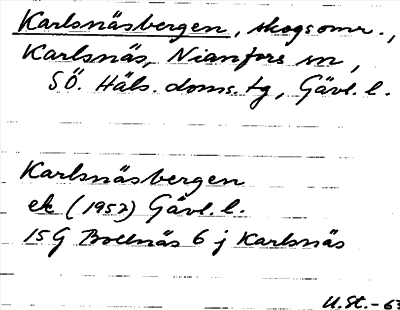 Karlsnäsbergen, skogsomr.,
Karlsnäs, Nianfors sn,
SÖ. Häls. doms. tg, Gävl. l.
Karlsnäsbergen
ek (1957) Gävl. l.
15G Bollnäs 6 j Karlsnäs
U.St.-63